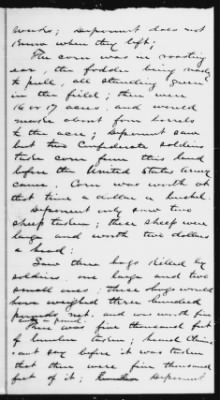 weeks; deponent does not
know when they left;
The corn was in roasting
ear, the fodder being ready
to pull, all standing green
in the field; there were
16 or 17 acres, and would
make about four barrels
to the acre; deponent saw
but two Confederate soldiers
take corn from this land
before the United States army
came; Corn was worth at
that time a dollar a bushel.
Deponent only saw two
sheep taken; these sheep were
large and worth two dollars
a head;
Saw three hogs killed by
soldiers, one large and two
small ones; these hogs would
have weighed three hundred
pounds net, and was worth five
cents a pound;
There was five thousand feet
of lumber taken; heard Claim-
ant say before it was taken
that there were five thousand
feet of it; deponent